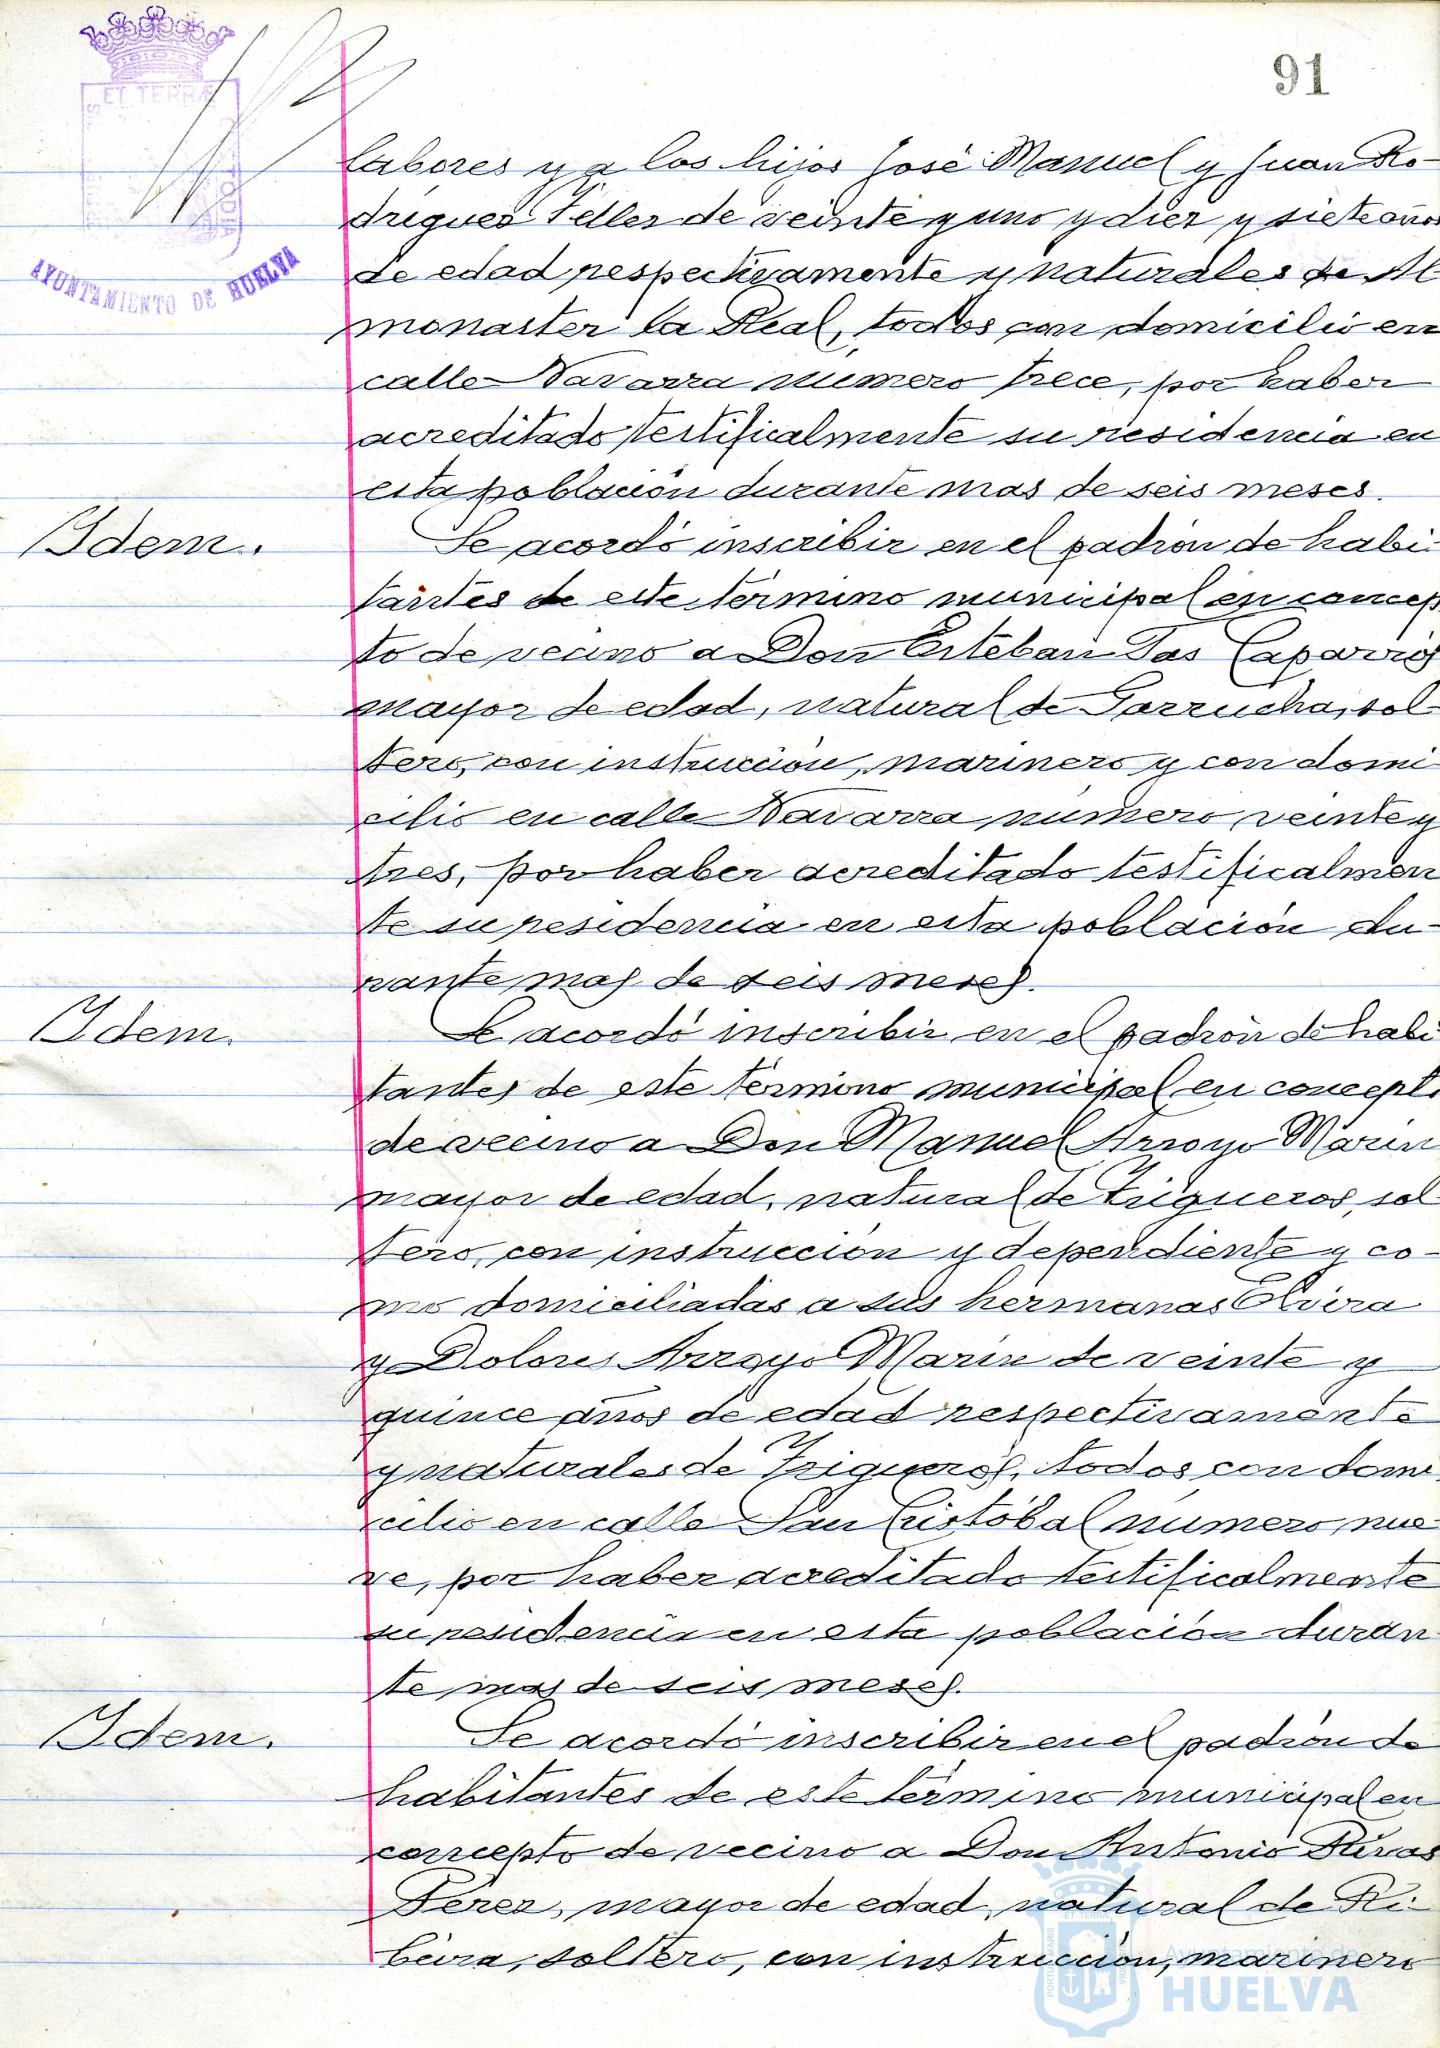 91
ET TERRÆ
TODIA
AYUNTAMIENTO DE HUELVA
labores y a los hijos José Manuel y Juan Ro-
driguez Feller de veinte y uno y diez y siete años
de edad respectivamente y naturales de Al
monaster la Real, todos con domicilio en
calle Navarra número trece, por haber
acreditado testificalmente su residencia en
esta población durante mas de seis meses.
Idem.
Se acordó inscribir en el padrón de habi-
tantes de este término municipal en concep
to de vecino a Don Esteban Jas Caparrós
mayor de edad, natural de Garrucha, sol-
tero, con instrucción, marinero y con domi
cilio en calle Navarra número veinte y
tres, por haber acreditado testificalmen
te su residencia en esta población du-
rante mas de seis meses.
Idem.
Se acordó inscribir en el padrón de habi
tantes de este término municipal en concepto
de vecino a Don Manuel Arroyo Marin
mayor de edad, natural de Trigueros, sol
tero, con instrucción y dependiente y co-
mo domiciliadas a sus hermanas Elvira
y Dolores Arroyo Marin de veinte y
quince años de edad respectivamente
y naturales de Trigueros, todos con domi
cilio en calle San Cristóbal número nue-
ve, por haber acreditado testificalmente
su residencia en esta población duran
te mas de seis meses.
Idem.
Se acordó inscribir en el padrón de
habitantes de este término municipal en
concepto de vecino a Don Antonio Rivas
Pérez, mayor de edad, natural de Ri-
beira, soltero, con instrucción, marinero
Ayuntamiento de
HUELVA